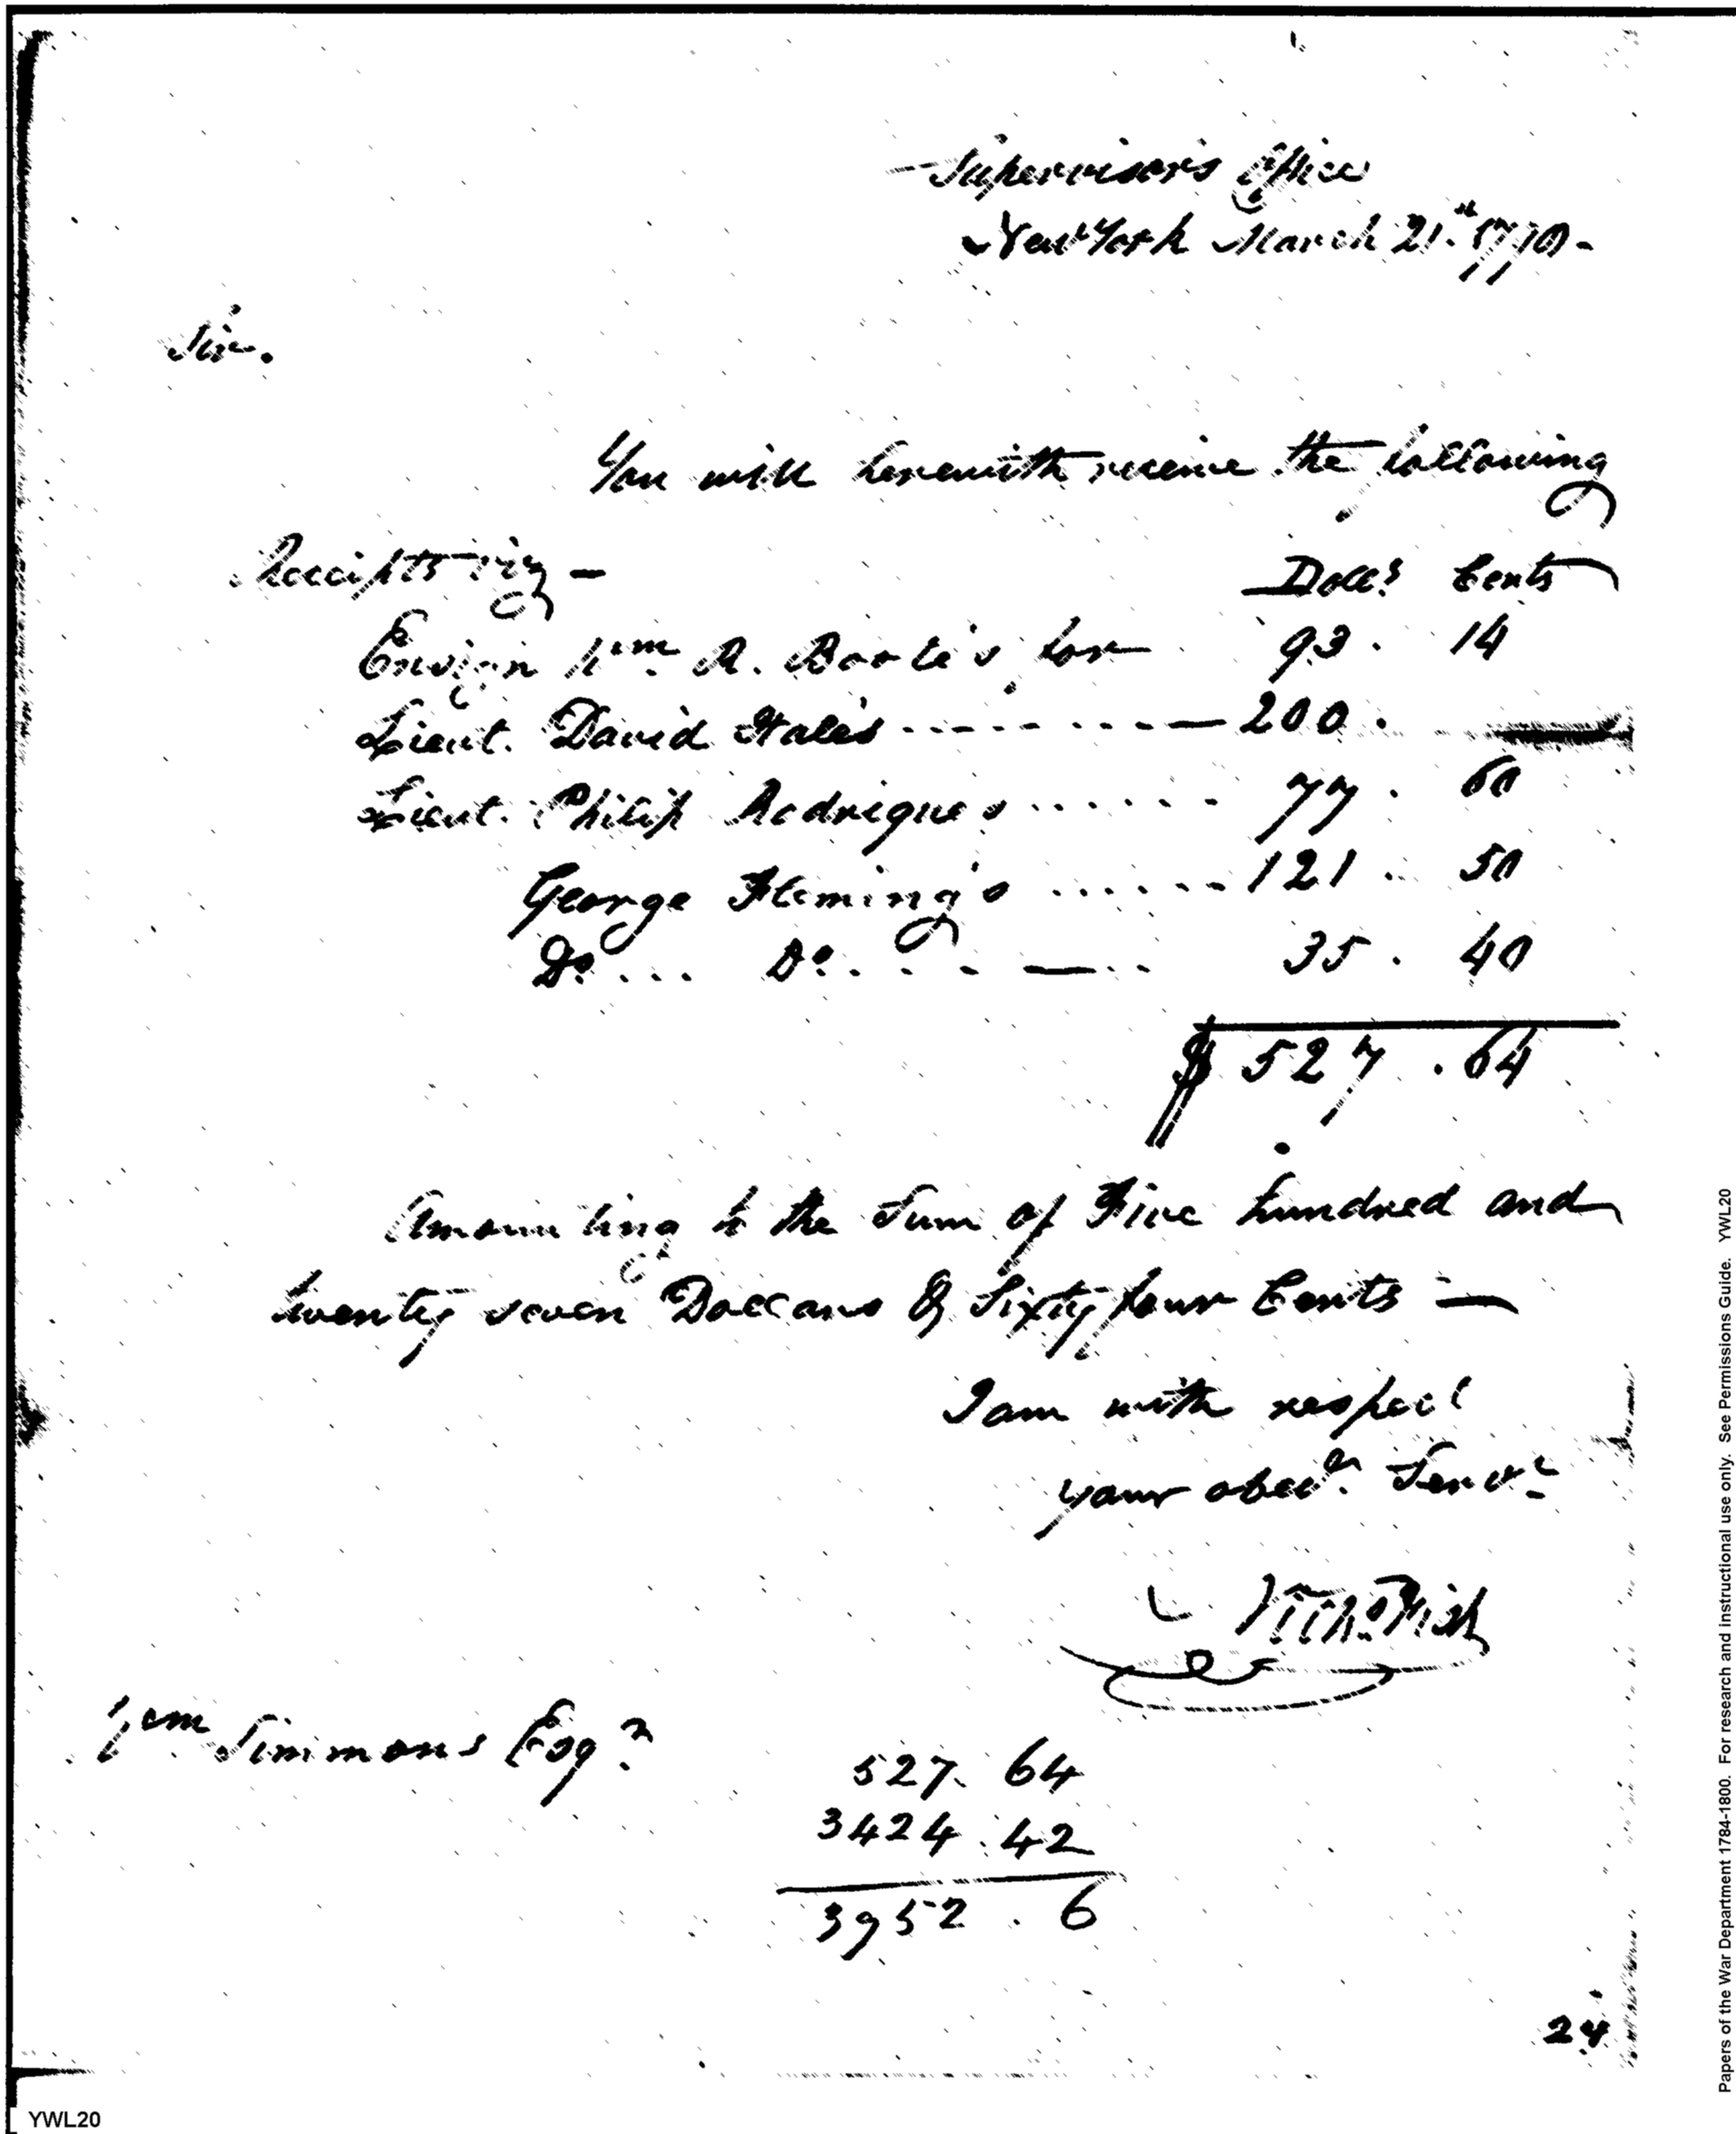 Supervisor's Office
New York March 21.st
Sir.
You will herewith receive the following
Receipts viz — Dolls Cents
Ensign Wm R. Boote's for 93 . 14
Lieut. David Hale's - - - - - - - - 200 .
Lieut. Philip Rodrigue's . . . . . . 77 . 60
George Fleming's . . . . . . - - 121 . 50
Do. . . . Do. . . - — . . 35 . 40
$ 527 . 64
Amounting to the Sum of Five hundred and
twenty seven Dollars & Sixty four Cents —
I am with respect
your obedt. Servt.
Nichs Fish
Wm Simmons Esqr
527. 64
3424. 42
3952 . 6
24
YWL20
Papers of the War Department 1784-1800. For research and instructional use only. See Permissions Guide. YWL20